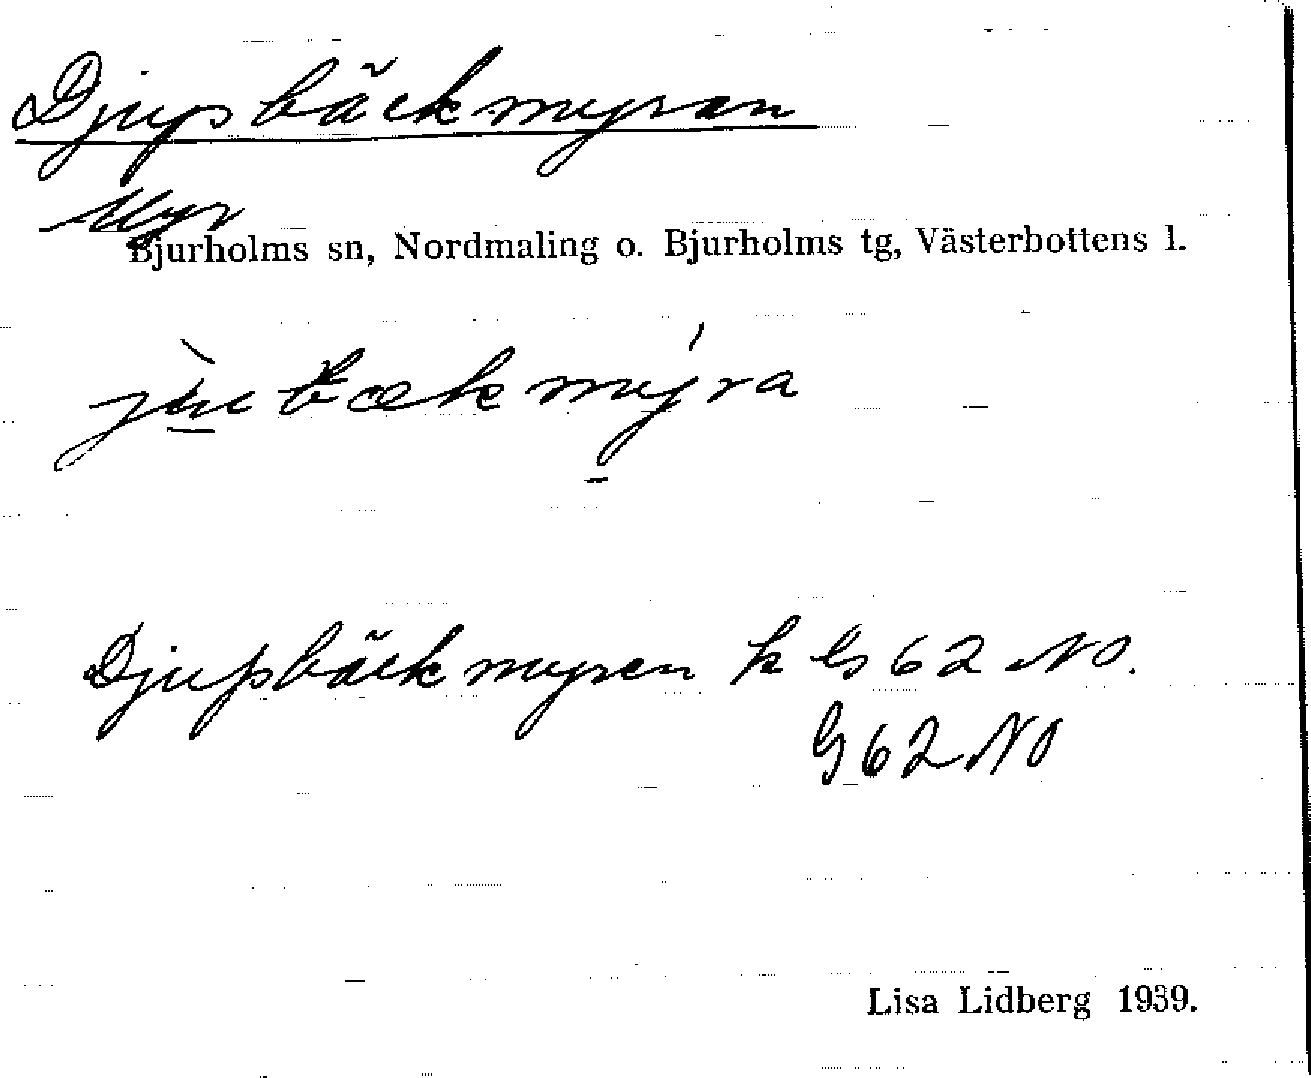 Djupsbäckmyran
Myr
Bjurholms sn, Nordmaling o. Bjurholms tg, Västerbottens l.
Djupbäckmyren k G 62 NO.
G 62 NO
Lisa Lidberg 1939.